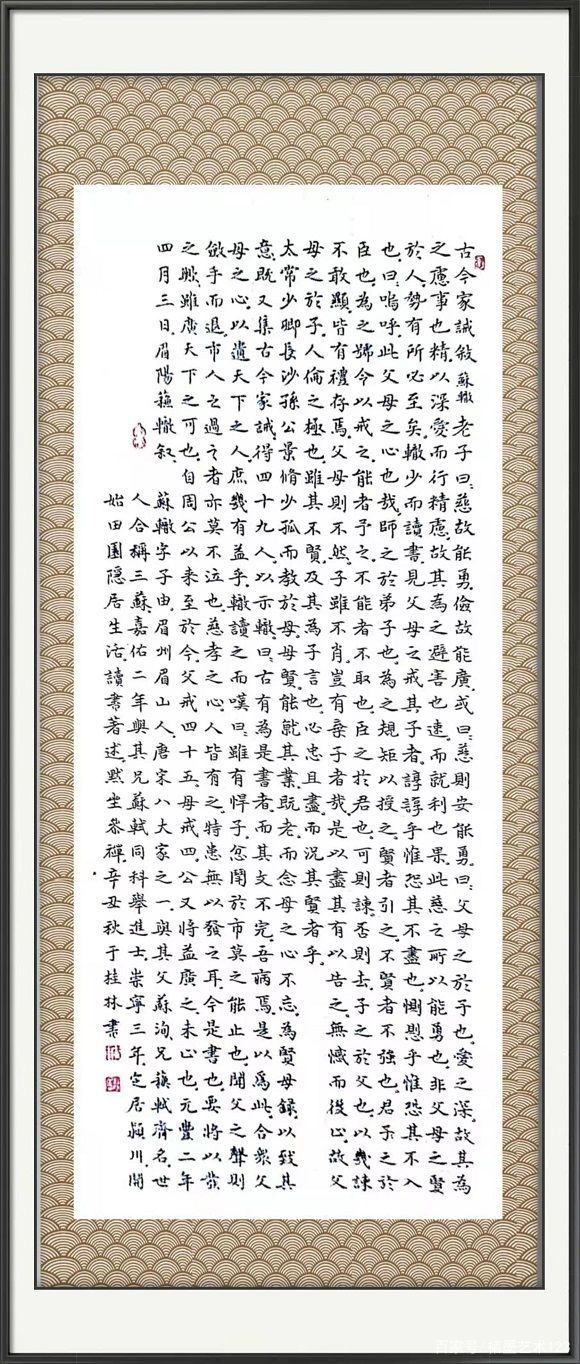 古今家誡敘 蘇轍 老子曰慈故能勇儉故能廣或曰慈則安能勇曰父母之於子也愛之深故其為
之慮事也精以深愛而行精慮故其為之避害也速而就利也果此慈之所以能勇也非父母之賢
於人勢有所必至矣轍少而讀書見父母之戒其子者諄諄乎惟恐其不盡也惻惻乎惟恐其不入
也曰嗚呼此父母之心也哉師之於弟子也為之規矩以授之賢者引之不賢者不強也君子之於
臣也為之號令以戒之能者予之不能者不取也臣之於君也可則諫否則去子之於父也以幾諫
不敢顯皆有禮存焉父母則不然子雖不肖豈有棄子者哉是以盡其有以告之無憾而後止故父
母之於子人倫之極也雖其不賢及其為子言也必忠且盡而況其賢者乎
太常少卿長沙孫公景脩少孤而教於母母賢能就其業既老而念母之心不忘為賢母錄以致其
意既又集古今家誡得四十九人以示轍曰古有為是書者而其文不完吾病焉是以為此合眾父
母之心以遺天下之人庶幾有益乎轍讀之而嘆曰雖有悍子忿鬧於市莫之能止也聞父之聲則
斂手而退市人之過之者亦莫不泣也慈孝之心人皆有之特患無以發之耳今是書也要將以發
之歟雖廣天下之可也自周公以來至於今父戒四十五母戒四公又將益廣之未止也元豐二年
四月三日眉陽蘇轍叙
蘇轍字子由眉州眉山人唐宋八大家之一與其父蘇洵兄蘇軾齊名世
人合稱三蘇嘉佑二年與其兄蘇軾同科舉進士崇寧三年定居潁川開
始田園隱居生活讀書著述默坐參禪辛丑秋于桂林書